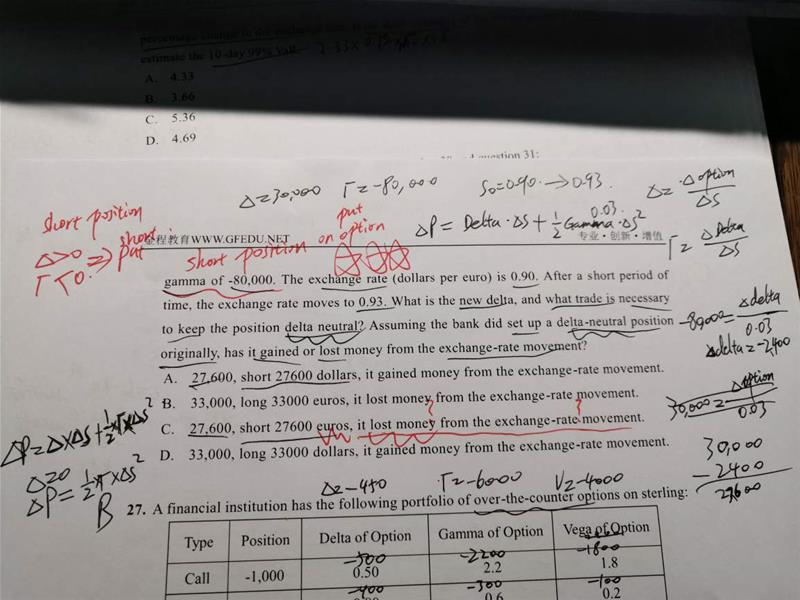 percentage change in the exchange rate
estimate the 10-day 99% VaR.
A. 4.33
B. 3.66
C. 5.36
D. 4.69
question 31:
Δ=30,000 Γ=-80,000 S₀=0.90 → 0.93
Δ= Δoption/ΔS
short position
Δ>0
Γ<0 ⇒ short put
put
short position on option
ΔP = Delta·ΔS + ½Gamma·ΔS²
0.03
Γ= ΔDelta/ΔS
金程教育WWW.GFEDU.NET
专业·创新·增值
gamma of -80,000. The exchange rate (dollars per euro) is 0.90. After a short period of
time, the exchange rate moves to 0.93. What is the new delta, and what trade is necessary
to keep the position delta neutral? Assuming the bank did set up a delta-neutral position
originally, has it gained or lost money from the exchange-rate movement?
A. 27,600, short 27600 dollars, it gained money from the exchange-rate movement.
B. 33,000, long 33000 euros, it lost money from the exchange-rate movement.
C. 27,600, short 27600 euros, it lost money from the exchange-rate movement.
D. 33,000, long 33000 dollars, it gained money from the exchange-rate movement.
-80000 = Δdelta/0.03
Δdelta=-2,400
30,000 = Δoption/0.03
30,000
-2400
27,600
ΔP=Δ×ΔS+½×Γ×ΔS²
Δ=0
ΔP=½×Γ×ΔS²
B
Δ=-450 Γ=-6000 V=-4000
27. A financial institution has the following portfolio of over-the-counter options on sterling:
Type Position Delta of Option Gamma of Option Vega of Option
-500 -2200 -1800
Call -1,000 0.50 2.2 1.8
-400 -300 -100
0.6 0.2